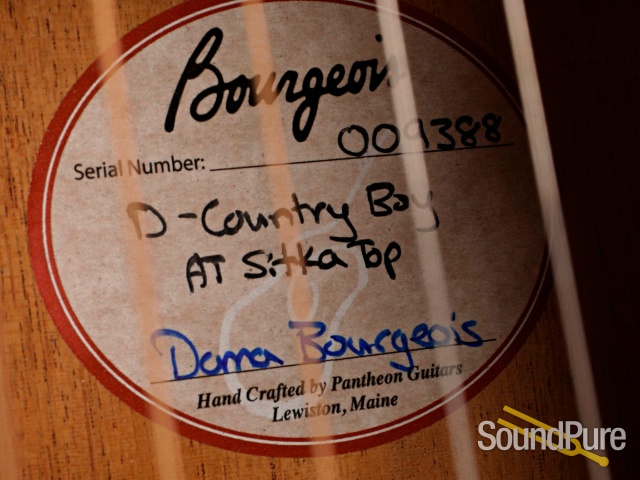 Bourgeois
Serial Number: 009388
D-Country Boy
AT Sitka Top
Dana Bourgeois
Hand Crafted by Pantheon Guitars
Lewiston, Maine
SoundPure